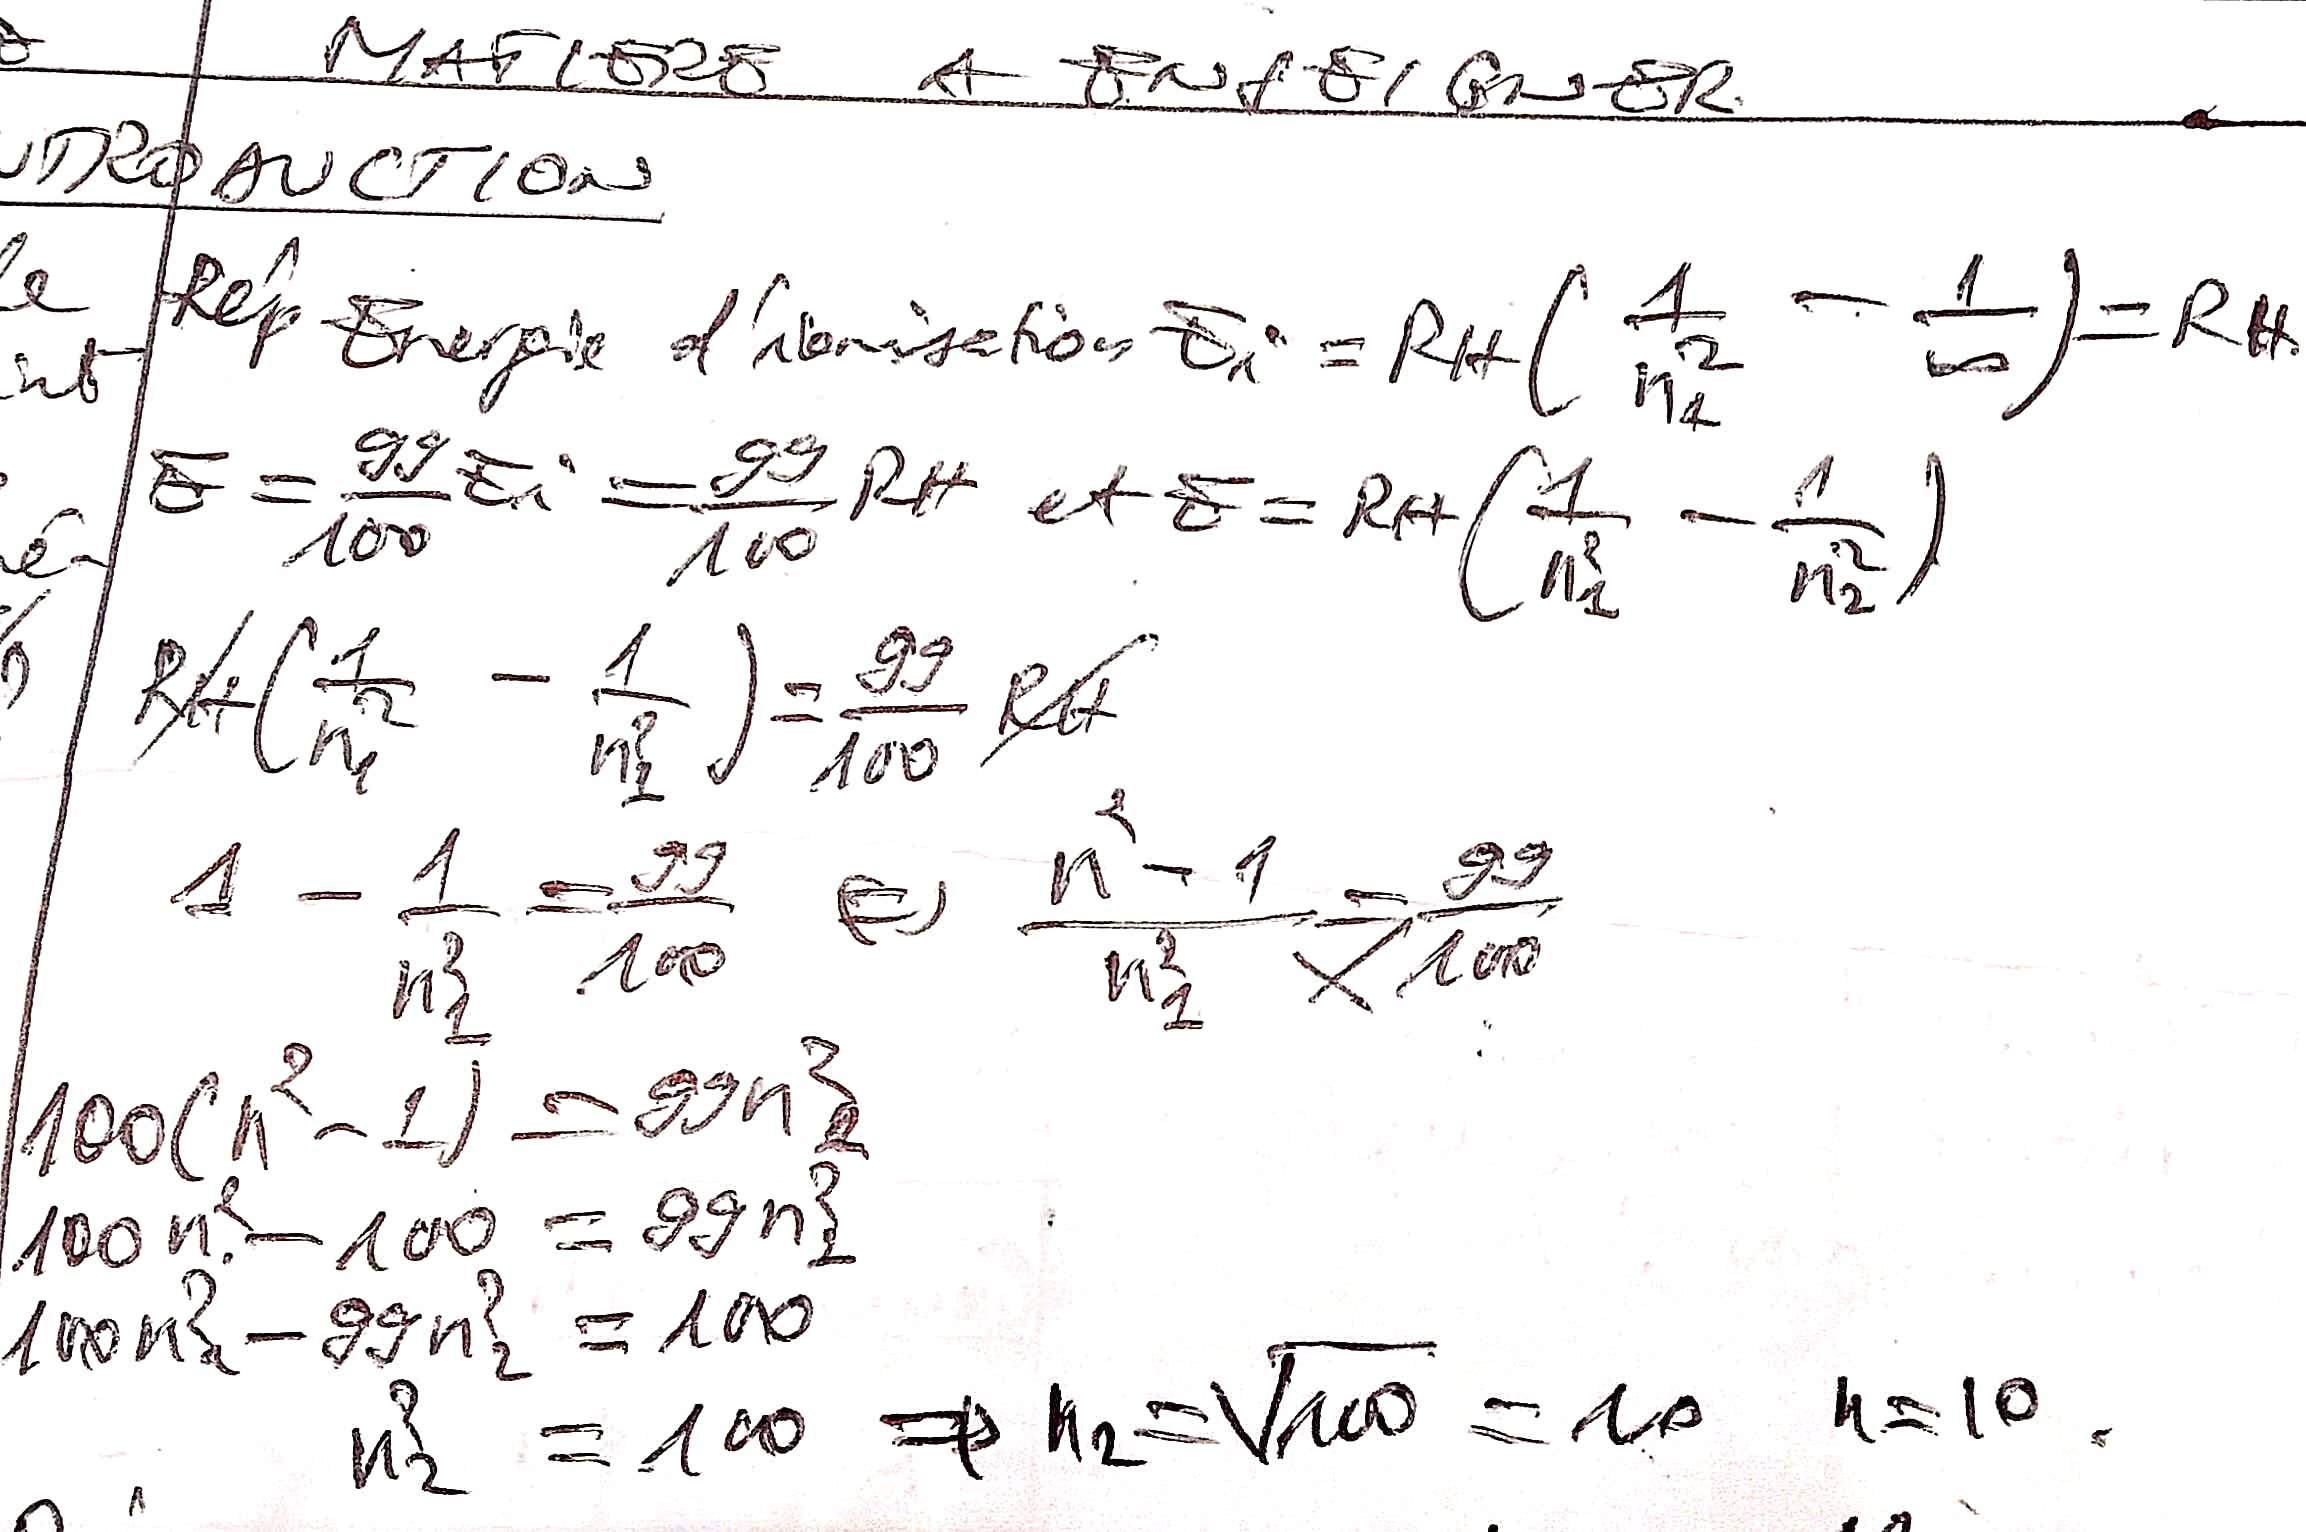 MATIERE A ENSEIGNER
INTRODUCTION
Rép Energie d'ionisation Ei = RH(1/n₁² - 1/∞) = RH
E = 99/100 Ei = 99/100 RH et E = RH(1/n₁² - 1/n₂²)
RH(1/n₁² - 1/n₂²) = 99/100 RH
1 - 1/n₂² = 99/100 ⇔ n²-1/n₂² = 99/100
100(n²-1) = 99n₂²
100n² - 100 = 99n₂²
100n₂² - 99n₂² = 100
n₂² = 100 ⇒ n₂ = √100 = 10 n = 10.